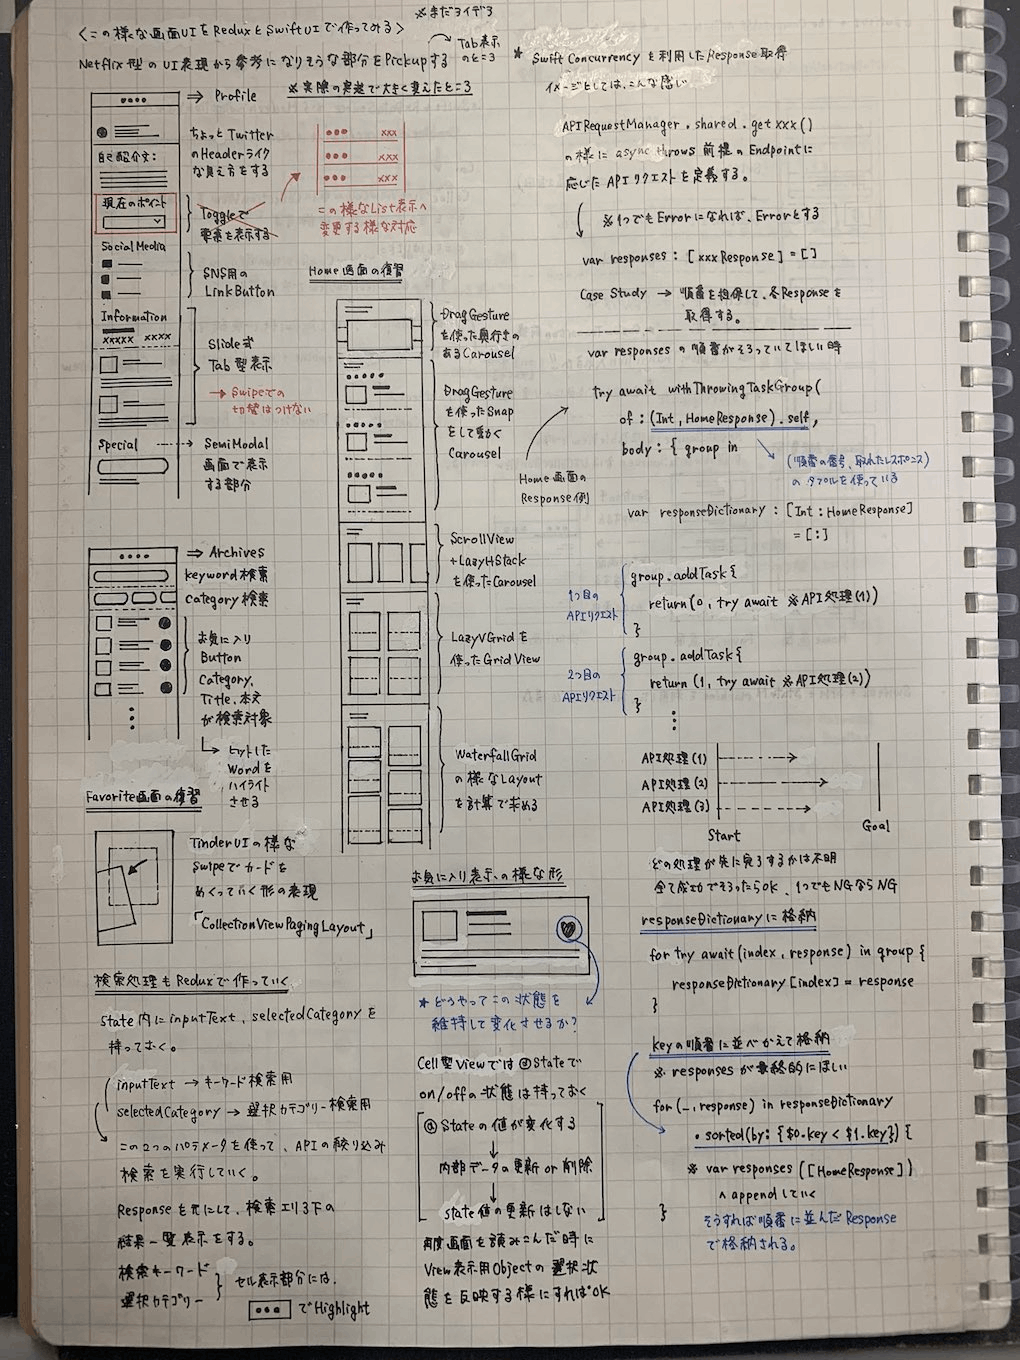 ※まだライデ3
<この様な画面UIをReduxとSwiftUIで作ってみる>
Netflix型のUI表現から参考になりそうな部分をPickupする
Tab表示
のところ
※実際の実装で大きく変えたところ
⇒ Profile
ちょっとTwitter
のHeaderライク
な見え方をする
自己紹介文:
現在のポイント
Toggleで
要素を表示する
xxx
xxx
xxx
この様なList表示へ
変更する様な対応
Social Media
SNS用の
LinkButton
Information
xxxxx xxxx
Slide式
Tab型表示
→ Swipeでの
切替はつけない
Special
SemiModal
画面で表示
する部分
⇒ Archives
keyword検索
category検索
お気に入り
Button
Category,
Title,本文
が検索対象
ヒットした
Wordを
ハイライト
させる
Favorite画面の復習
TinderUIの様な
Swipeでカードを
めくっていく形の表現
「CollectionViewPagingLayout」
検索処理もReduxで作っていく
State内にinputText、selectedCategoryを
持っておく。
inputText → キーワード検索用
selectedCategory → 選択カテゴリー検索用
この2つのパラメータを使って、APIの絞り込み
検索を実行していく。
Responseを元にして、検索エリア下の
結果一覧表示をする。
検索キーワード
選択カテゴリー
セル表示部分には、
でHighlight
Home画面の復習
DragGesture
を使った奥行きの
あるCarousel
DragGesture
を使ったSnap
をして動く
Carousel
Home画面の
Response例
ScrollView
+LazyHStack
を使ったCarousel
LazyVGridを
使ったGridView
WaterfallGrid
の様なLayout
を計算で求める
お気に入り表示の様な形
★どうやってこの状態を
維持して変化させるか?
Cell型Viewでは@Stateで
on/offの状態は持っておく
@Stateの値が変化する
↓
内部データの更新or削除
↓
state値の更新はしない
再度画面を読みこんだ時に
View表示用Objectの選択状
態を反映する様にすればOK
★ Swift Concurrencyを利用したResponse取得
イメージとしては、こんな感じ
APIRequestManager.shared.getxxx()
の様にasync throws前提のEndpointに
応じたAPIリクエストを定義する。
※1つでもErrorになれば、Errorとする
var responses : [xxxResponse] = []
Case Study → 順番を担保して、各Responseを
取得する。
var responsesの順番がそろっていてほしい時
try await withThrowingTaskGroup(
of : (Int, HomeResponse).self,
body : { group in
(順番の番号、取れたレスポンス)
のタプルを使っている
var responseDictionary : [Int : HomeResponse]
= [:]
1つ目の
APIリクエスト
group.addTask {
return (0, try await ※API処理(1))
}
2つ目の
APIリクエスト
group.addTask {
return (1, try await ※API処理(2))
}
API処理(1)
API処理(2)
API処理(3)
Start
Goal
どの処理が先に完了するかは不明
全て成功でそろったらOK、1つでもNGならNG
responseDictionaryに格納
for try await (index, response) in group {
responseDictionary[index] = response
}
keyの順番に並べかえて格納
※ responsesが最終的にほしい
for (_, response) in responseDictionary
.sorted(by: {$0.key < $1.key}) {
※ var responses ([HomeResponse])
へappendしていく
}
そうすれば順番に並んだResponse
で格納される。